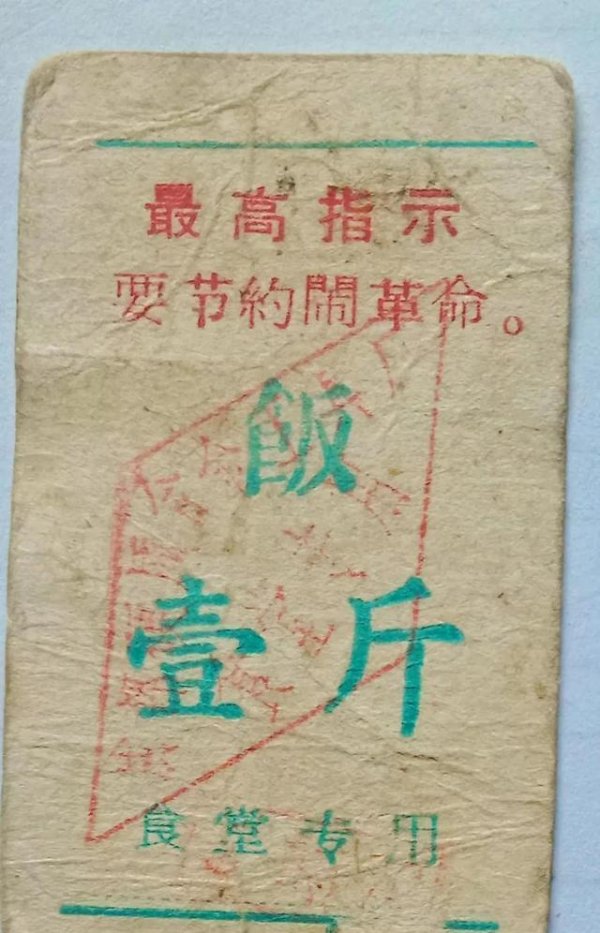 最高指示
要节約閙革命。
飯
壹斤
食堂专用